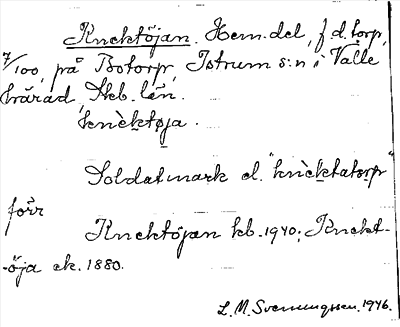 Knektöjan. Hem.del, f.d. torp,
7/100, på Botorp, Istrum s:n i Valle
härad, Skb. län.
knèktøja.
Soldatmark el. "knècktatorp"
förr
Knektöjan kb. 1940; Knekt-
-öja ek. 1880.
L. M. Svenungsson. 1946.